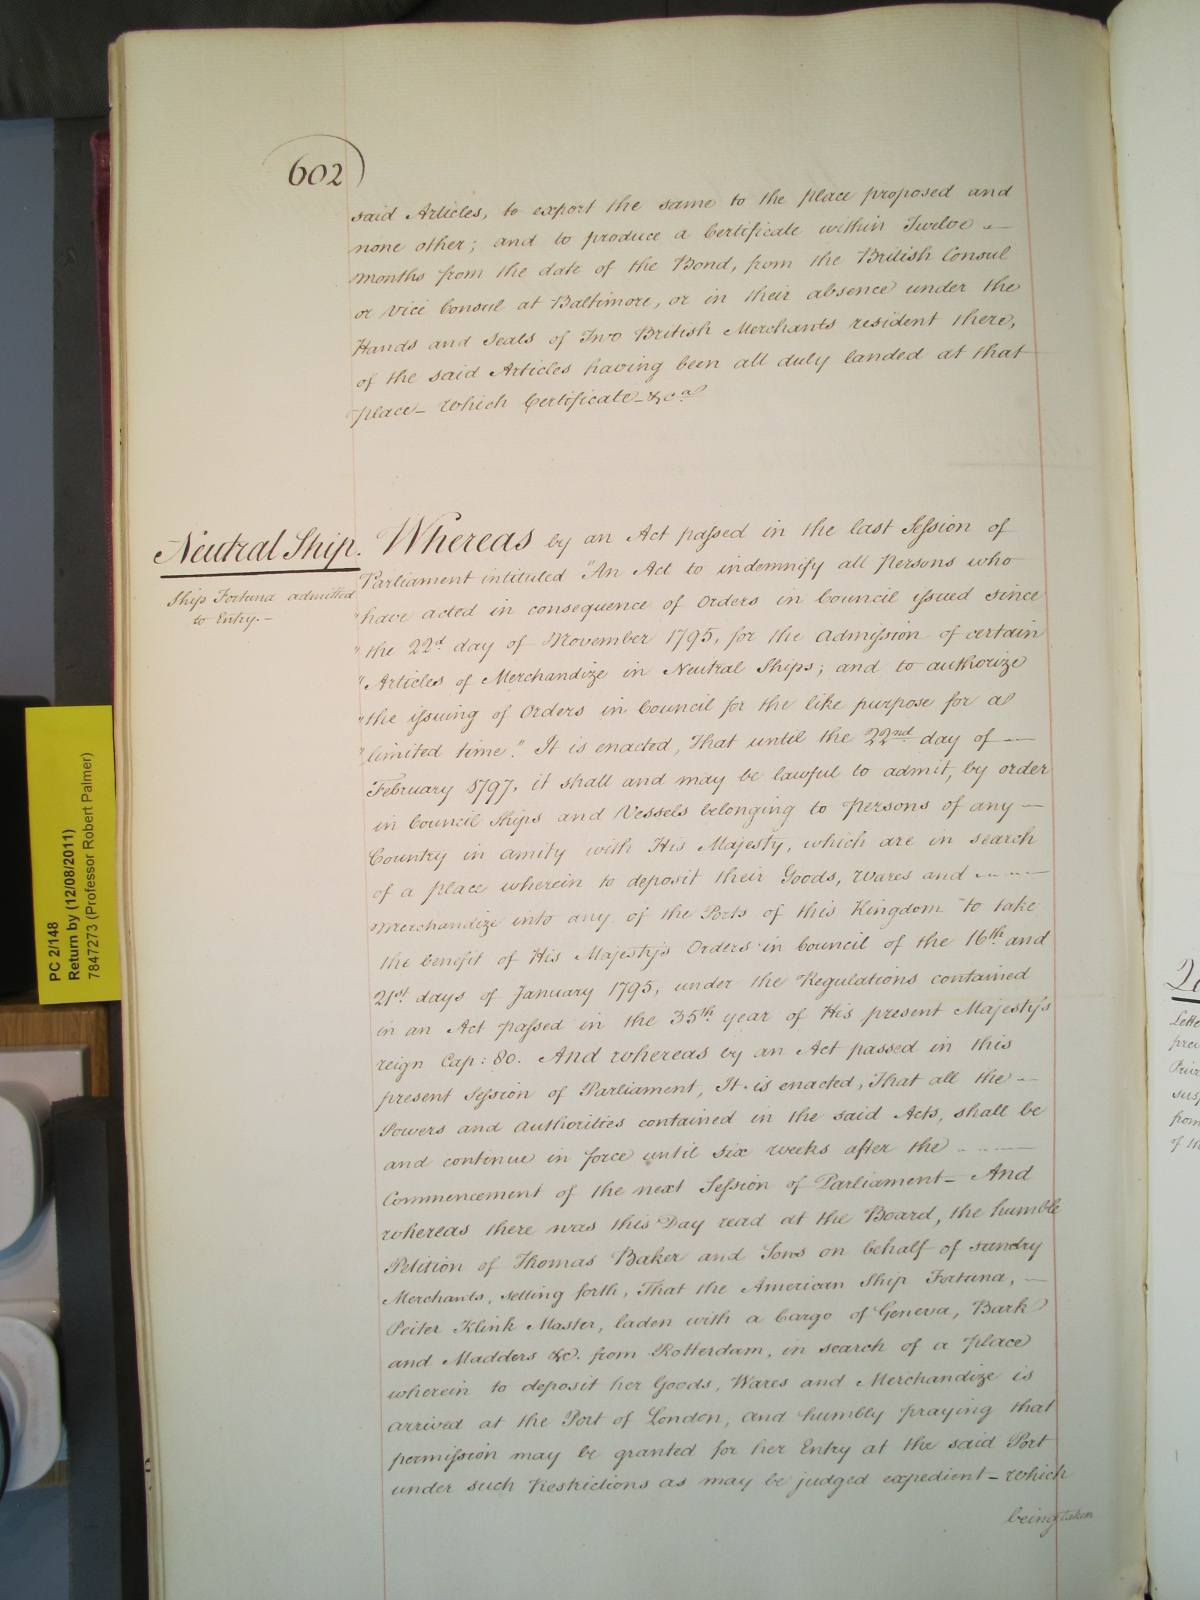 602
said Articles, to export the same to the place proposed and
none other; and to produce a Certificate within Twelve
months from the date of the Bond, from the British Consul
or Vice Consul at Baltimore, or in their absence under the
Hands and Seals of Two British Merchants resident there,
of the said Articles having been all duly landed at that
place_ which Certificate_&ca
Neutral Ship.
Ship Fortuna admitted
to Entry.-
Whereas by an Act passed in the last Session of
Parliament intituled "An Act to indemnify all Persons who
"have acted in consequence of Orders in Council issued since
"the 22d day of November 1795, for the admission of certain
"Articles of Merchandize in Neutral Ships; and to authorize
"the issuing of Orders in Council for the like purpose for a
"limited time." It is enacted, That until the 22nd day of
February 1797, it shall and may be lawful to admit, by order
in Council Ships and Vessels belonging to persons of any
Country in amity with His Majesty, which are in search
of a place wherein to deposit their Goods, Wares and
Merchandize into any of the Ports of this Kingdom to take
the benefit of His Majesty's Orders in Council of the 16th and
21st days of January 1795, under the Regulations contained
in an Act passed in the 35th year of His present Majesty's
reign Cap: 80. And whereas by an Act passed in this
present Session of Parliament, It is enacted, That all the
Powers and Authorities contained in the said Acts, shall be
and continue in force until six weeks after the
Commencement of the next Session of Parliament_ And
whereas there was this Day read at the Board, the humble
Petition of Thomas Baker and Sons on behalf of sundry
Merchants, setting forth, That the American Ship Fortuna,
Peiter Klink Master, laden with a Cargo of Geneva, Bark
and Madders &c. from Rotterdam, in search of a place
wherein to deposit her Goods, Wares and Merchandize is
arrived at the Port of London, and humbly praying that
permission may be granted for her Entry at the said Port
under such Restrictions as may be judged expedient_ which
being taken
PC 2/148
Return by (12/08/2011)
7847273 (Professor Robert Palmer)